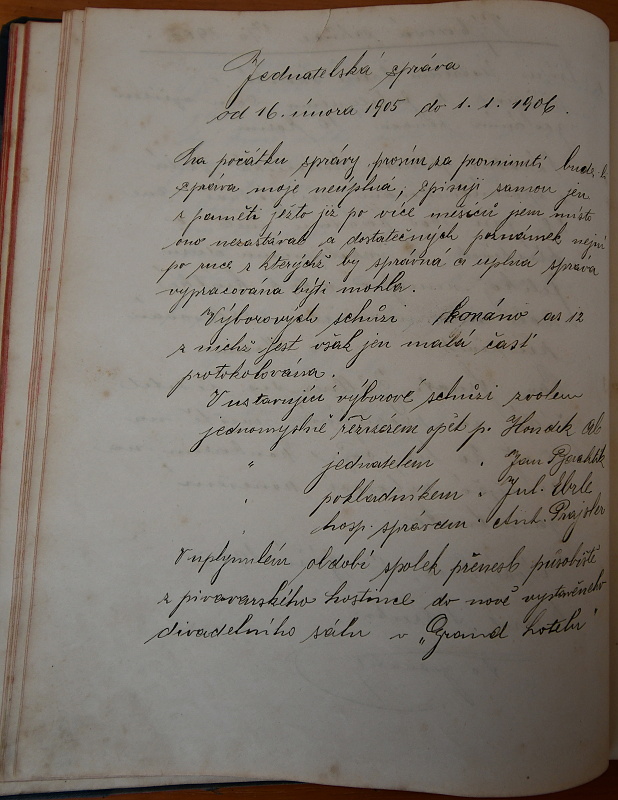 Jednatelská zpráva
od 16. února 1905 do 1. 1. 1906.
Na počátku zprávy prosím za prominutí bude-li
zpráva moje neúplná; spisuji samou jen
z paměti ježto již po více měsíců jsem místo
ono nezastával a dostatečných poznámek nejni
po ruce z kterýchž by správna a uplná zpráva
vypracována býti mohla.
Výborových schůzi konáno as 12
z nichž jest však jen malá část
protokolována.
V ustavující výborové schůzi zvolen
jednomyslně režisérem opět p. Hondík
" jednatelem " Jan
" pokladníkem " Jul. Eberle
hosp. správcem " Ant. Prajsler
V uplynulém období spolek přenesl působiště
z pivovarského hostince do nově vystavěného
divadelního sálu v „Grand hotelu"